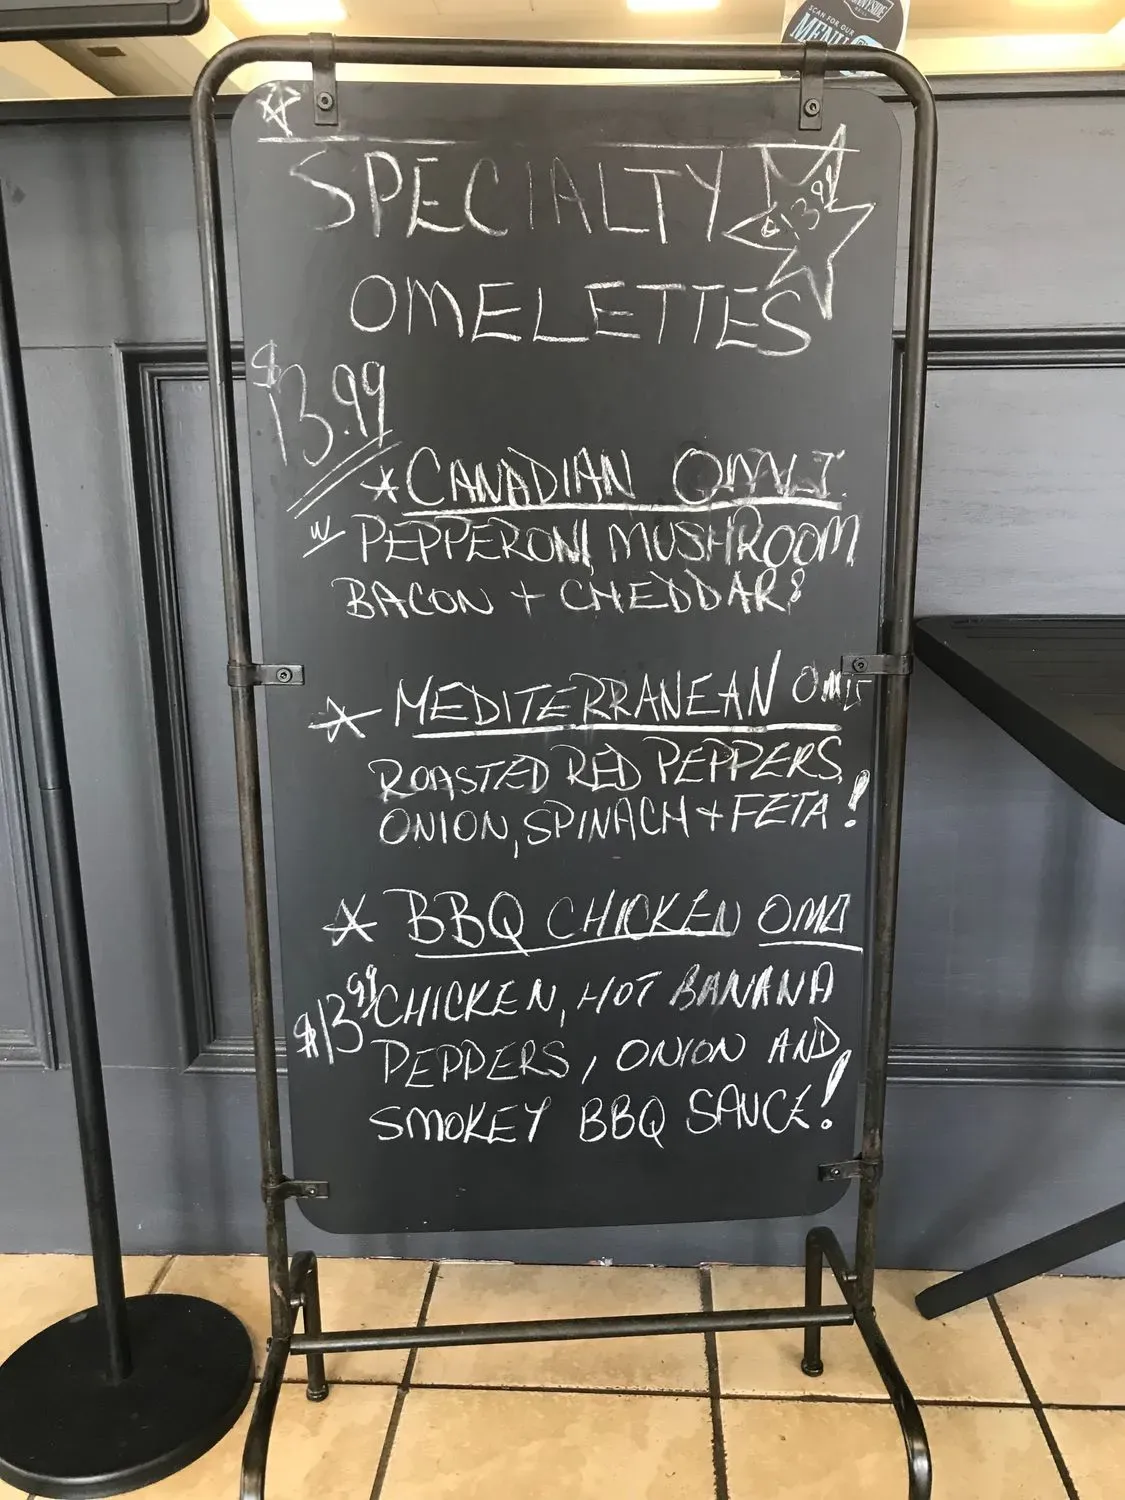 SUNNYSIDE
SCAN FOR OUR
MENU
SPECIALTY
$13.99
OMELETTES
$13.99
*CANADIAN
w/ PEPPERONI, MUSHROOM,
BACON + CHEDDAR!
* MEDITERRANEAN
ROASTED RED PEPPERS,
ONION, SPINACH + FETA!
* BBQ CHICKEN
$13.99 CHICKEN, HOT BANANA
PEPPERS, ONION AND
SMOKEY BBQ SAUCE!